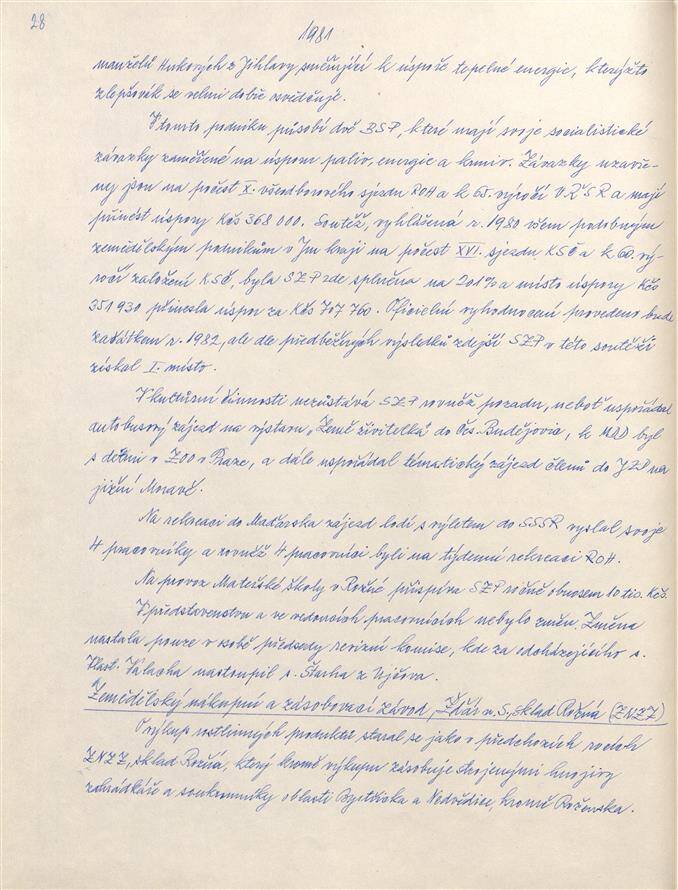 28
1981
manželů Hukových z Jihlavy, směřující k úspoře tepelné energie, kterýžto
zlepšovák se velmi dobře osvědčuje.
V tomto podniku působí dvě BSP, které mají svoje socialistické
závazky zaměřené na úsporu paliv, energie a krmiv. Závazky uzavře-
ny jsou na počest X. všeodborového sjezdu ROH a k 65. výročí VŘSR a mají
přinést úspory Kčs 368 000. Soutěž, vyhlášená r. 1980 všem podobným
zemědělským podnikům v Jm kraji na počest XVI. sjezdu KSČ a k 60. vý-
ročí založení KSČ, byla SZP zde splněna na 201% a místo úspory Kčs
351 930 přinesla úspor za Kčs 707 760. Oficielní vyhodnocení provedeno bude
začátkem r. 1982, ale dle předběžných výsledků zdejší SZP v této soutěži
získal I. místo.
V kulturní činnosti nezůstává SZP rovněž pozadu, neboť uspořádal
autobusový zájezd na výstavu „Země živitelka" do Čes. Budějovic, k MDD byl
s dětmi v ZOO v Praze, a dále uspořádal tématický zájezd členů do JZD na
jižní Moravě.
Na rekreaci do Maďarska zájezd lodí s výletem do SSSR vyslal svoje
4 pracovníky a rovněž 4 pracovníci byli na týdenní rekreaci ROH.
Na provoz Mateřské školy v Rožné přispívá SZP ročně obnosem 10 tis. Kčs.
V představenstvu a ve vedoucích pracovnících nebylo změn. Změna
nastala pouze v osobě předsedy revizní komise, kde za odcházejícího s.
Vlast. Válacha nastoupil s. Štarha z Ujčova.
Zemědělský nákupní a zásobovací závod, Žďár n. S., sklad Rožná (ZNZZ)
O výkup rostlinných produktů staral se jako v předchozích rocích
ZNZZ, sklad Rožná, který kromě výkupu zásobuje strojenými hnojivy
zahrádkáře a soukromníky oblasti Bystřicka a Nedvědice, kromě Roženska.